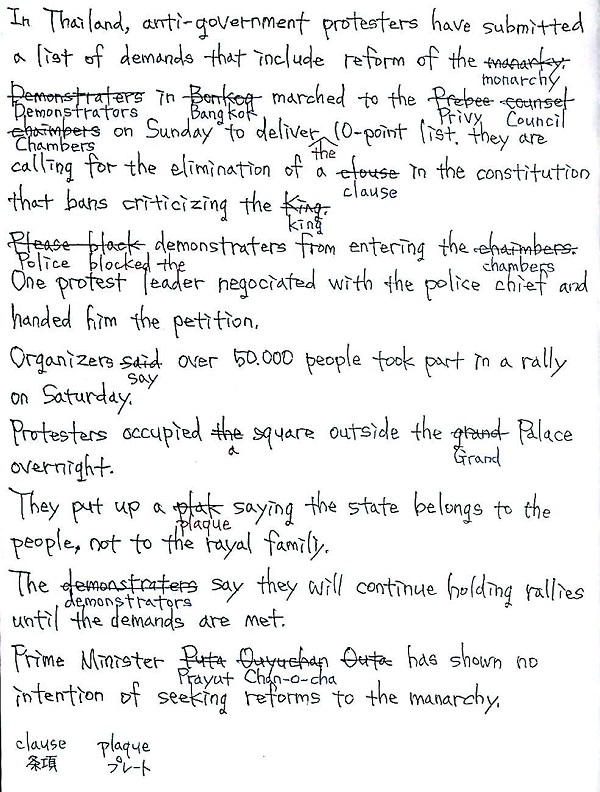 In Thailand, anti-government protesters have submitted
a list of demands that include reform of the manarky.
monarchy
Demonstraters in Bonkog marched to the Prebee counsel
Demonstrators Bangkok Privy Council
chaimbers on Sunday to deliver 10-point list. they are
Chambers the
calling for the elimination of a clouse in the constitution
clause
that bans criticizing the King.
king
Please black demonstraters from entering the chaimbers.
Police blocked the chambers
One protest leader negociated with the police chief and
handed him the petition.
Organizers said over 50.000 people took part in a rally
say
on Saturday.
Protesters occupied the square outside the grand Palace
a Grand
overnight.
They put up a plak saying the state belongs to the
plaque
people, not to the rayal family.
The demonstraters say they will continue holding rallies
demonstrators
until the demands are met.
Prime Minister Puta Ouyuchan Outa has shown no
Prayut Chan-o-cha
intention of seeking reforms to the manarchy.
clause plaque
条項 プレート